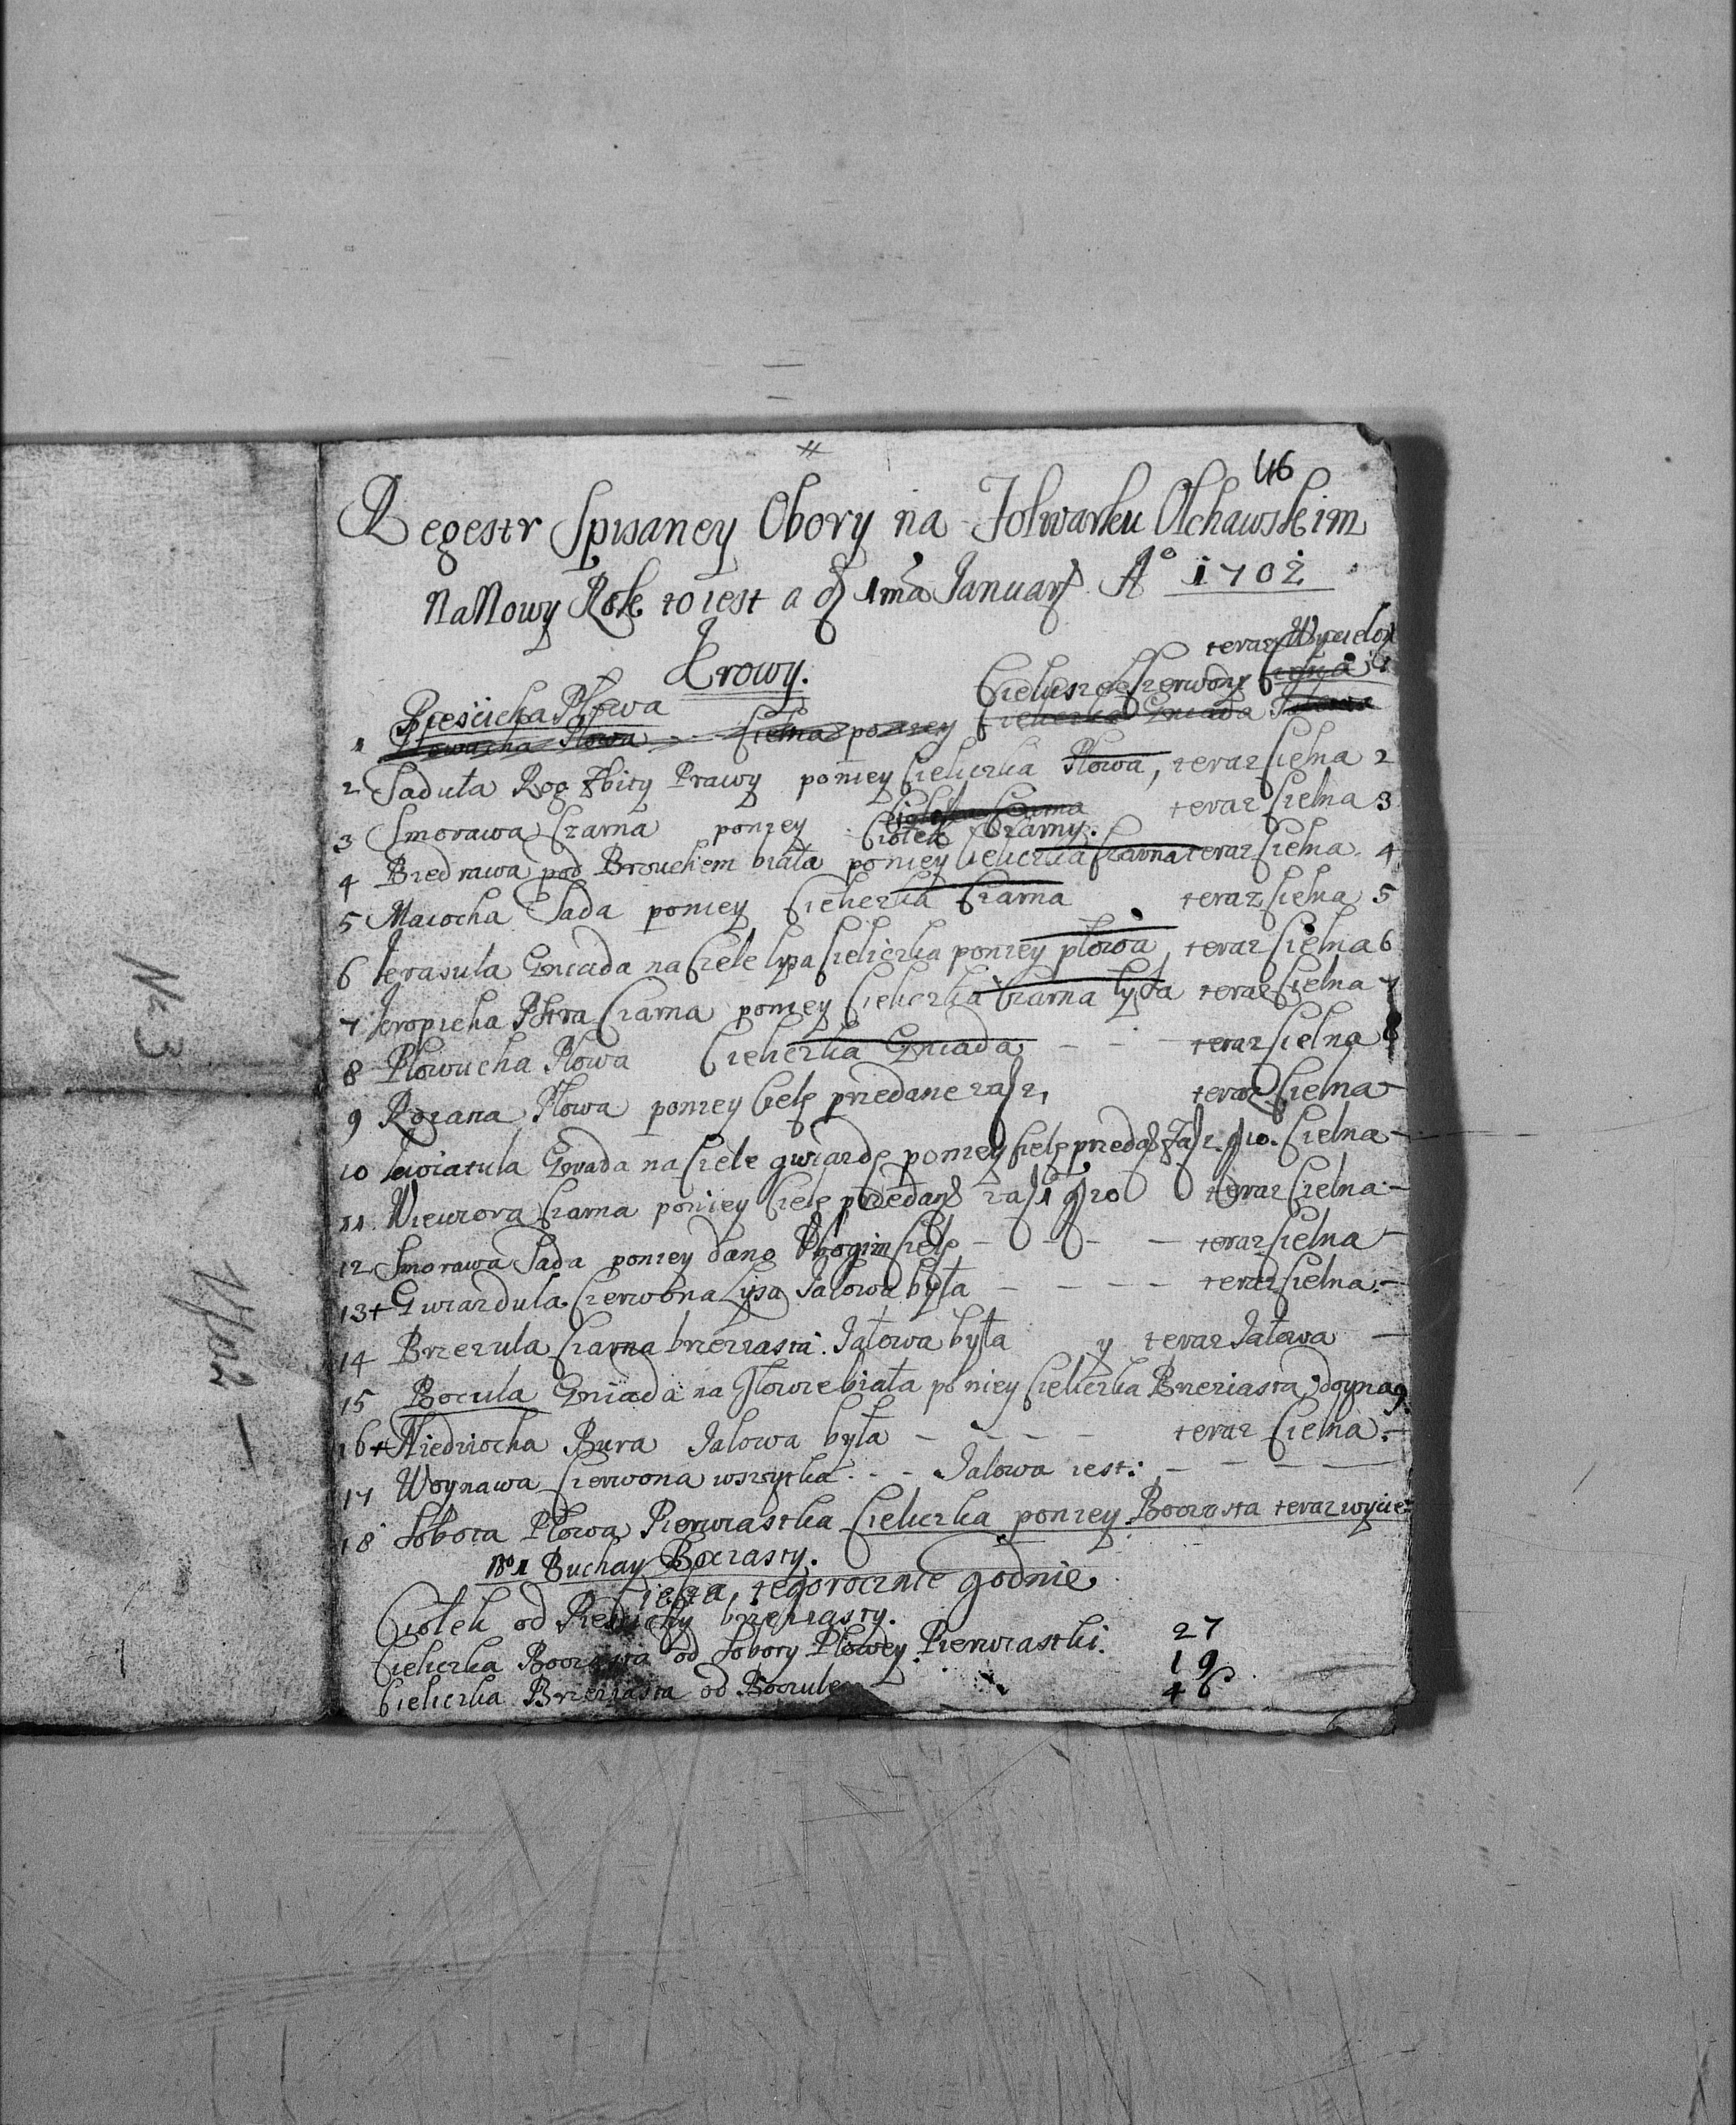 46
Regestr Spisaney Obory na Folwarku Olchawskim
Na Nowy Rok to iest a d 1ma Januarÿ Aº 1702
Krowy.
teraz
Pieścicha Płowa Czerwony
1 Płowa Cielna poniey Cieliczka Gniada
2 Saduła Rog Zbity Prawy poniey Cieliczka Płowa, teraz Cielna 2
3 Smorawa Czarna poniey Ciołek Czarny. teraz Cielna 3
4 Biedrawa pod Brzuchem biała poniey Cieliczka Czarna teraz Cielna 4
5 Maciocha Sada poniey Cieliczka Czarna teraz Cielna 5
6 Krasula Gniada na Czele łysa Cieliczka poniey płowa, teraz Cielna 6
7 Kropicha Pstra Czarna poniey Cieliczka Czarna łysa teraz Cielna 7
8 Płowucha Płowa Cieliczka Gniada - - - teraz Cielna 8
9 Rozana Płowa poniey Cielę przedane za teraz Cielna -
10 Kwiatula Gniada na Czele gwiazdę poniey Cielę Cielna -
11. Wiewiora Czarna poniey Cielę teraz Cielna -
12 Smorawa Sada poniey dano Vbogim Cielę - - - - teraz Cielna -
13+ Gwiazdula Czerwona Łysa Jałowa była - - - - teraz Cielna. -
14 Brzezula Czarna brzeziasta Jałowa była y teraz Jałowa -
15 Bocula Gniada na Głowie biała poniey Cieliczka Brzeziasta, doyna 9.
16+ Niedziocha Bura Jałowa była - - - - teraz Cielna. -
17 Woynawa Czerwona wszytka - - - Jałowa iest: - - - -
18 Sobota Płowa Pierwiastka Cieliczka poniey Boczasta teraz
No 1 Buchay Boczasty.
tegorocznie godnie
Ciołek od Pieścichy brzeziasty.
Cieliczka Boczasta od Soboty Płowey Pierwiastki. 27
Cieliczka Brzeziasta od Boczule 19
46
No 3
1702 -